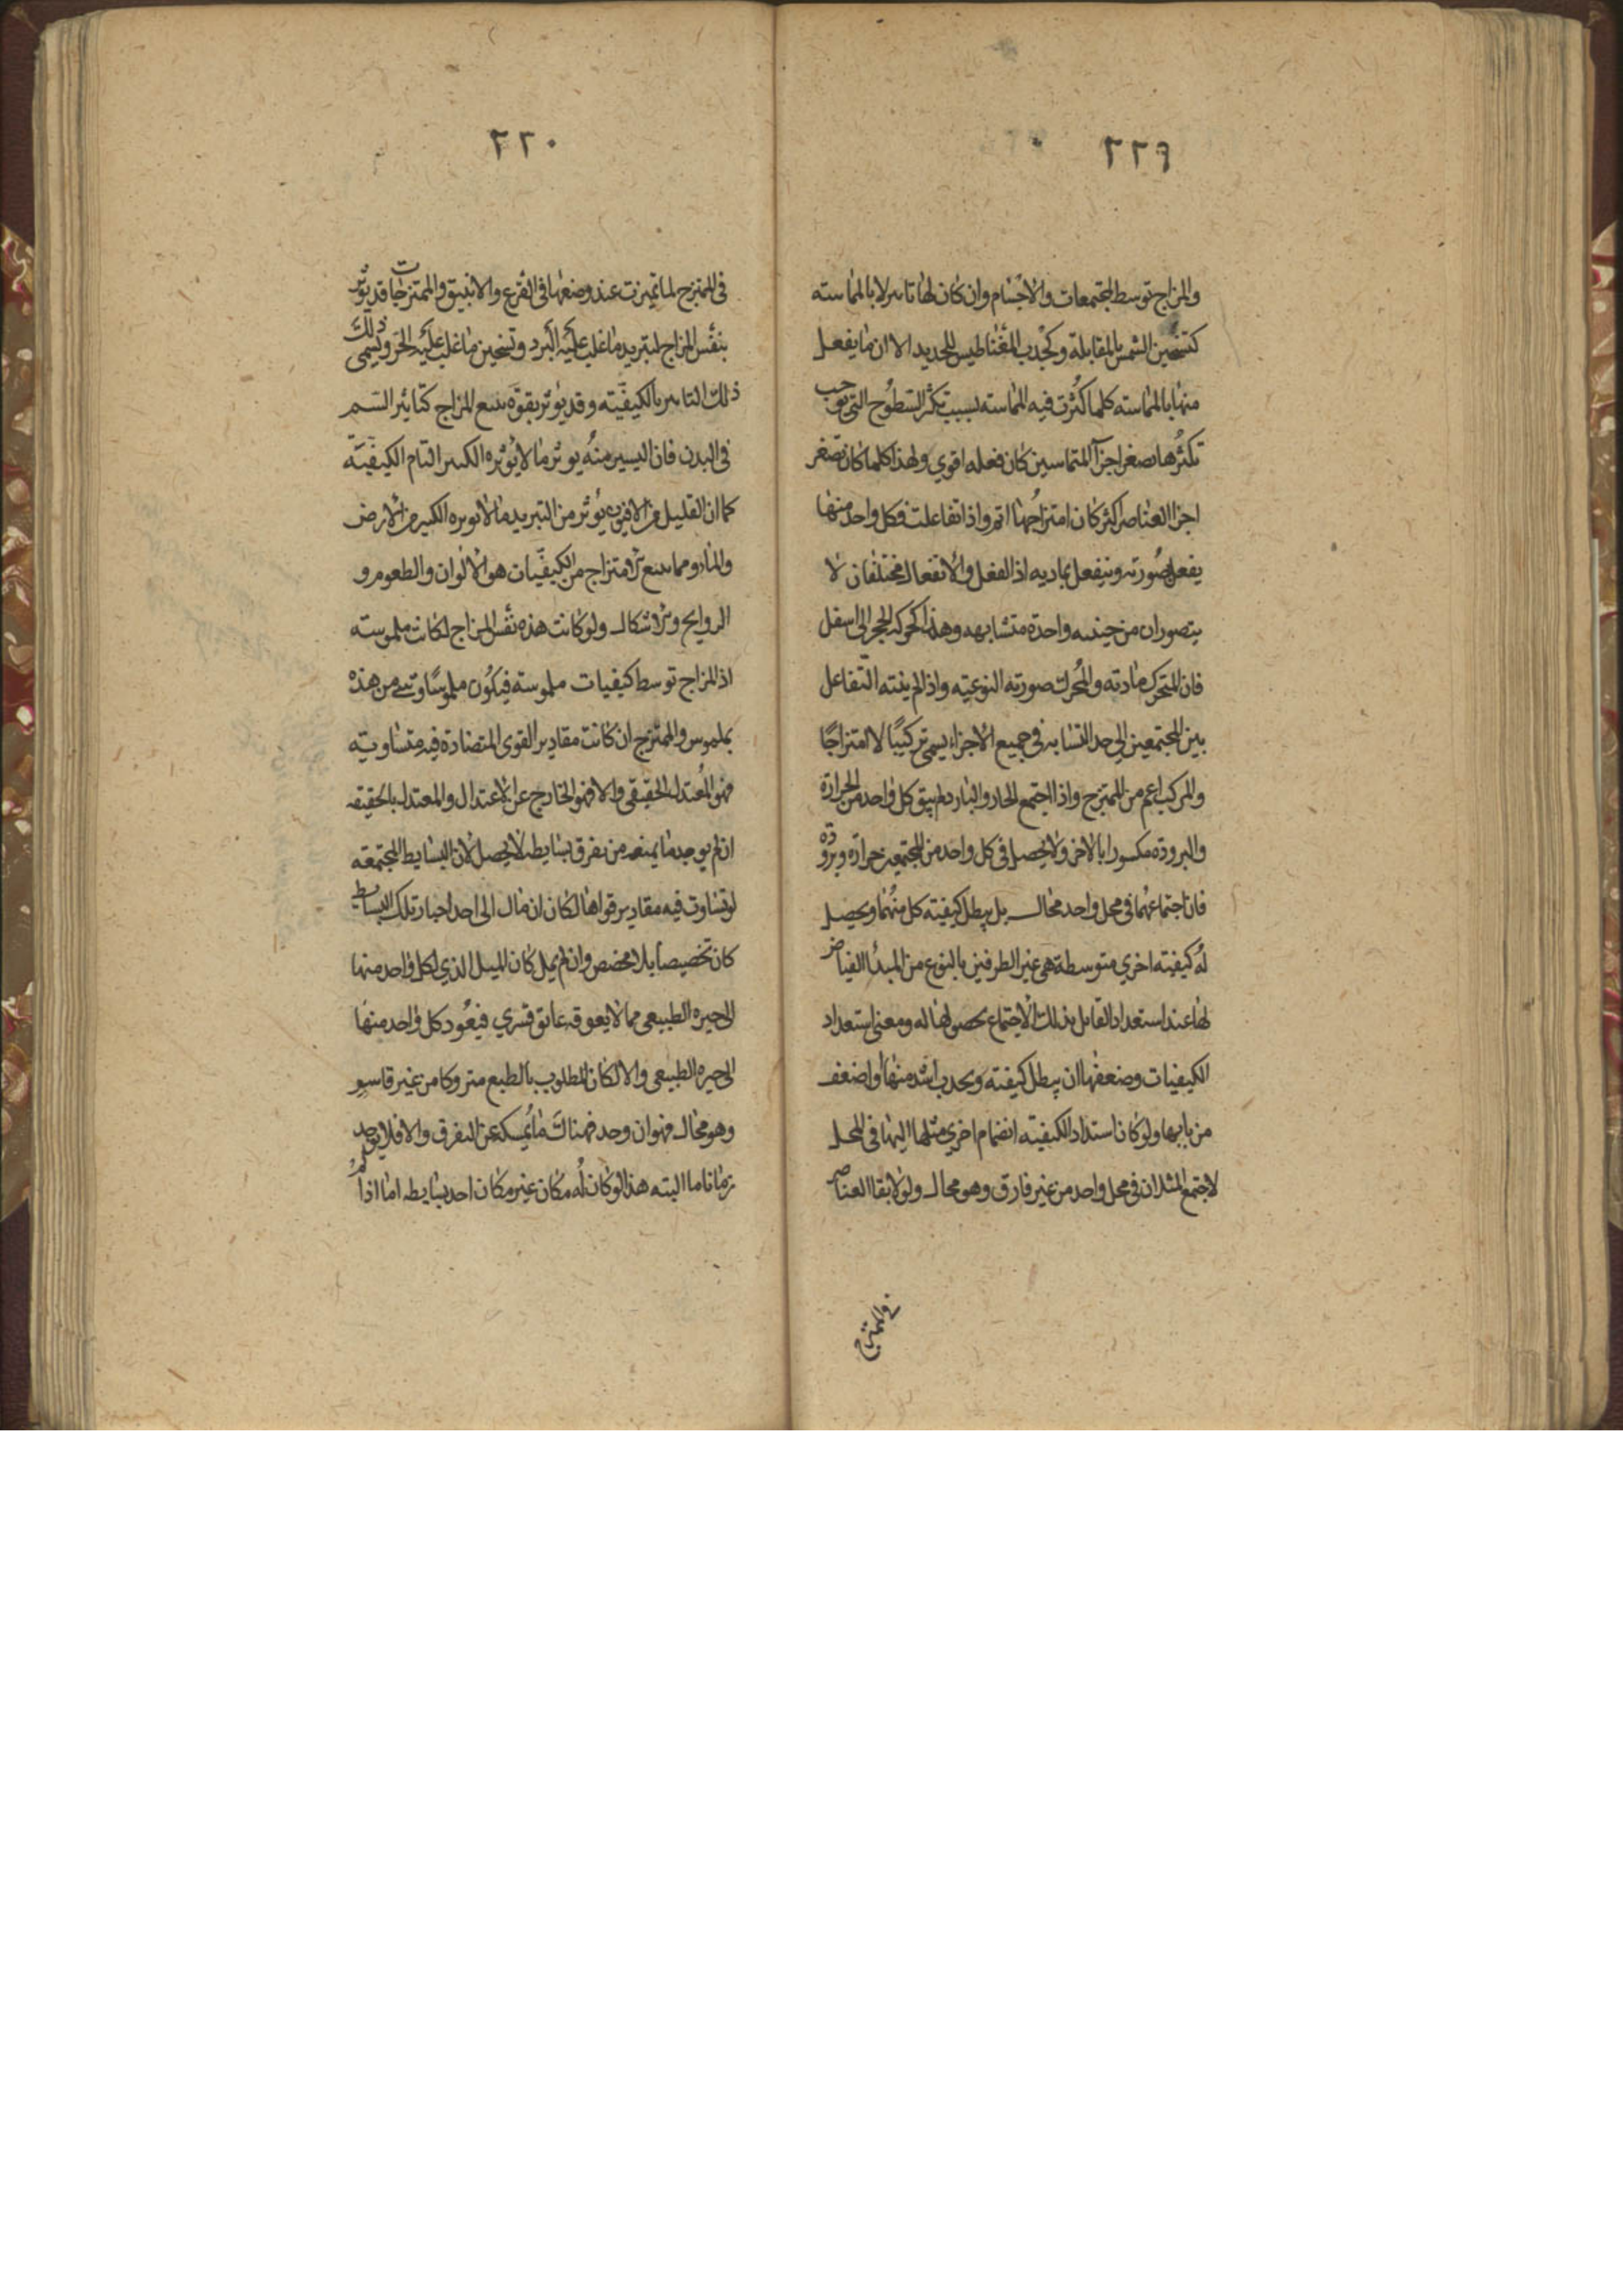 ٢٢٩
والمزاج توسط المجتمعات والاجسام وان كان لها تاثير لا بالمماسته
كتسخين الشمس بالمقابلة وكجذب المغناطيس للحديد الا ان ما يفعل
منها بالمماسته كلما كثرت فيه المماسته بسبب تكثر السطوح التي توجب
تكثرها صغر اجزآ المتماسين كان فعله اقوي ولهذا كلما كان تصغر
اجزا العناصر اكثر كان امتزاجها اتم واذا تفاعلت فكل واحد منها
يفعل بصورته وينفعل بماديه اذ الفعل والانفعال مختلفان لا
يتصوران من حيثيه واحدة متشابهه وهذا كحركه الحجر الى اسفل
فان المتحرك مادته والمحرك صورته النوعيته واذا لم ينته التفاعل
بين المجتمعين الى حد التشابه في جميع الاجزاء يسمى تركيبًا لا امتزاجًا
والمركب اعم من الممتزج واذا اجتمع الحار والبارد لم يبق كل واحد من الحرارة
والبرودة مكسورا بالاخر ولا يحصل في كل واحد من المجتمعين حرارة وبرودة
فان اجتماعهما في محل واحد محال بل يبطل كيفيته كل منهما ويحصل
له كيفيته اخري متوسطة هي غير الطرفين بالنوع من المبدأ الفياض
لها عند استعداد القابل بذلك الاجتماع بحصولها له ومعنى استعداد
الكيفيات وضعفها ان يبطل كيفيته ويحدث اشد منها او اضعف
من بابها ولو كان استداد الكيفيته انضمام اخري مثلها اليها في المحل
لاجتمع المثلان في محل واحد من غير فارق وهو محال ولولا بقا العناصر
في الممتزج
٢٢٠
في الممتزج لما تميزت عند وضعها في القرع والانبيق والممتزجات قد يؤثر
بنفس المزاج لتبريد ما غلب عليه البرد وتسخين ما غلب عليه الحر ويسمى ذلك
ذلك التاثير بالكيفيته وقد يؤثر بقوة تتبع المزاج كتاثير السم
في البدن فان اليسير منه يوثر ما لا يوثره الكثير التام الكيفيته
كما ان القليل من الافيون يؤثر من التبريد ما لا يوثره الكثير من الارض
والماء ومما تتبع الامتزاج من الكيفيات هو الالوان والطعوم و
الروايح والاشكال ولو كانت هذه نفس المزاج لكانت ملموسته
اذ المزاج توسط كيفيات ملموسته فيكون ملموسًا ولا شي من هذه
بملموس والممتزج ان كانت مقادير القوى المتضادة فيه متساويته
فهو المعتدل الحقيقي والا فهو الخارج عن الاعتدال والمعتدل بالحقيقه
ان لم يوجد ما يمنعه من تفرق بسايطه لا يحصل لان البسايط المجتمعته
لو تساوت فيه مقادير قواها لكان ان مال الى احد احياز تلك البسايط
كان تخصيصا بلا مخصص وان لم يمل كان الميل الذي لكل واحد منها
الى حيزه الطبيعى مما لا يعوقه عائق قسري فيعود كل واحد منها
الى حيزه الطبيعى والا لكان المطلوب بالطبع متروكا من غير قاسر
وهو محال فهو ان وجد فهناك ما يمسكه عن التفرق والا فلا يوجد
زمانا ما البته هذا لو كان له مكان غير مكان احد بسايطه اما اذا لم